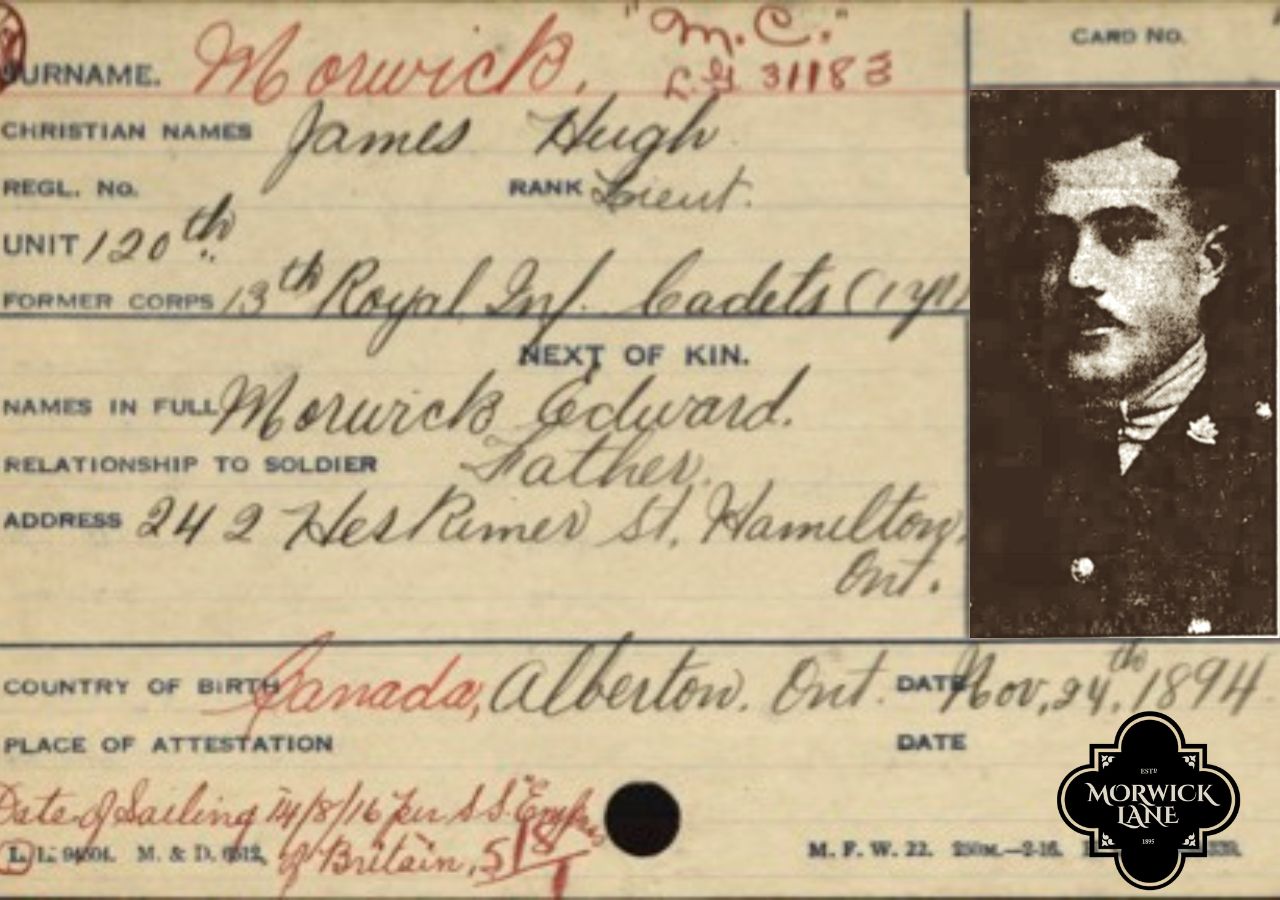 "M.C."
CARD NO.
SURNAME. Morwick. L.G. 31183
CHRISTIAN NAMES James Hugh
REGL. NO. RANK Lieut.
UNIT 120th
FORMER CORPS 13th Royal Inf. Cadets (1 yr
NEXT OF KIN.
NAMES IN FULL Morwick Edward.
RELATIONSHIP TO SOLDIER Father.
ADDRESS 242 Heskimer St. Hamilton,
Ont.
COUNTRY OF BIRTH Canada, Alberton. Ont. DATE Nov. 24th. 1894
PLACE OF ATTESTATION DATE
Date of Sailing 14/8/16 per S.S. "Empress
of Britain,
L. L. M. & D. M. F. W. 22.
ESTD
MORWICK
LANE
1895